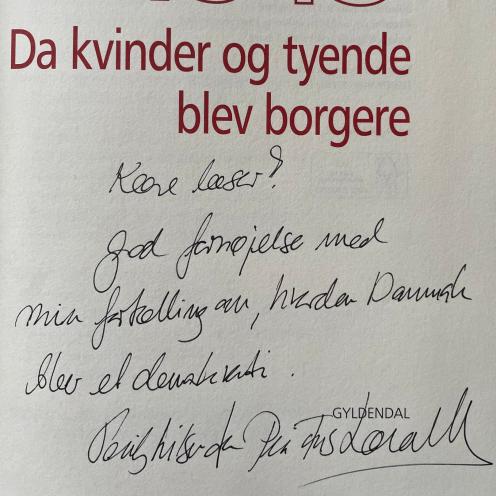 Da kvinder og tyende
blev borgere
Kære læser!
God fornøjelse med
min fortælling om, hvordan Danmark
blev et demokrati.
GYLDENDAL